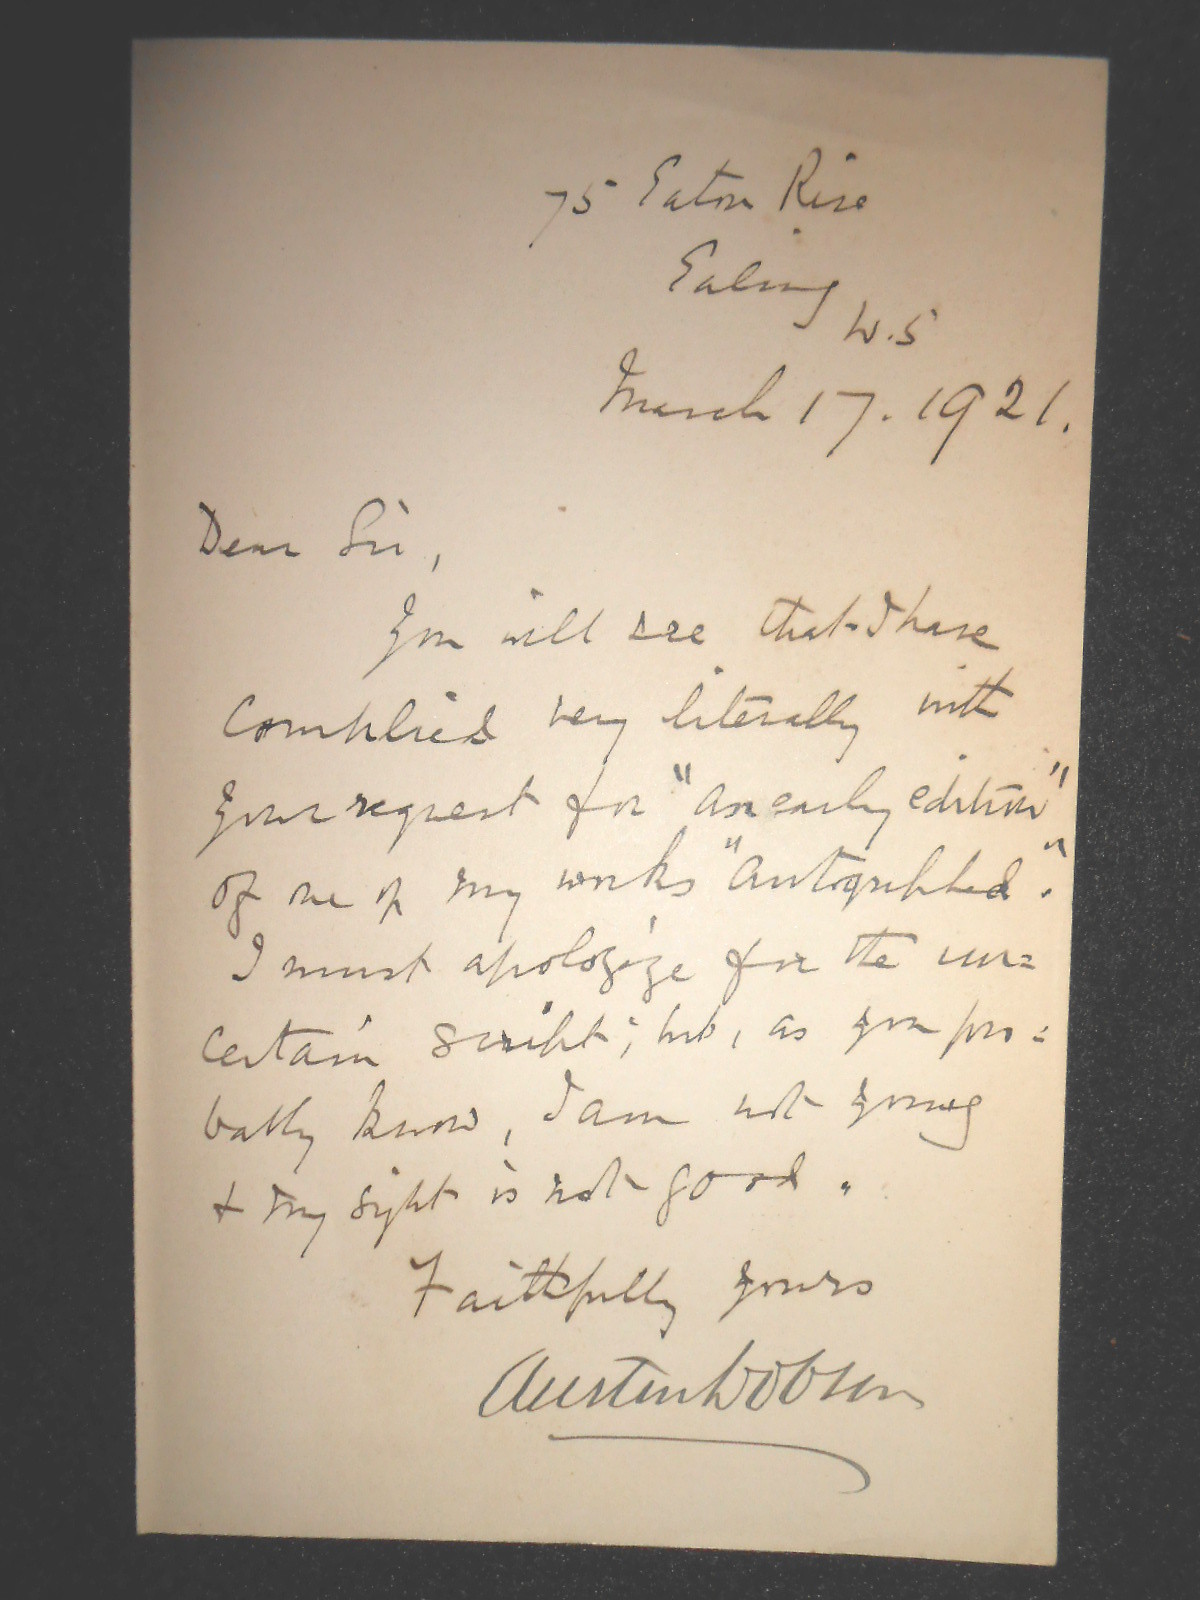 75 Eaton Rise
Ealing
W.5
March 17. 1921.
Dear Sir,
You will see that I have
complied very literally with
your request for "an early edition"
of one of my works "autographed".
I must apologize for the un=
certain script; but, as you pro=
bably know, I am not young
& my sight is not good.
Faithfully yours
Austin Dobson